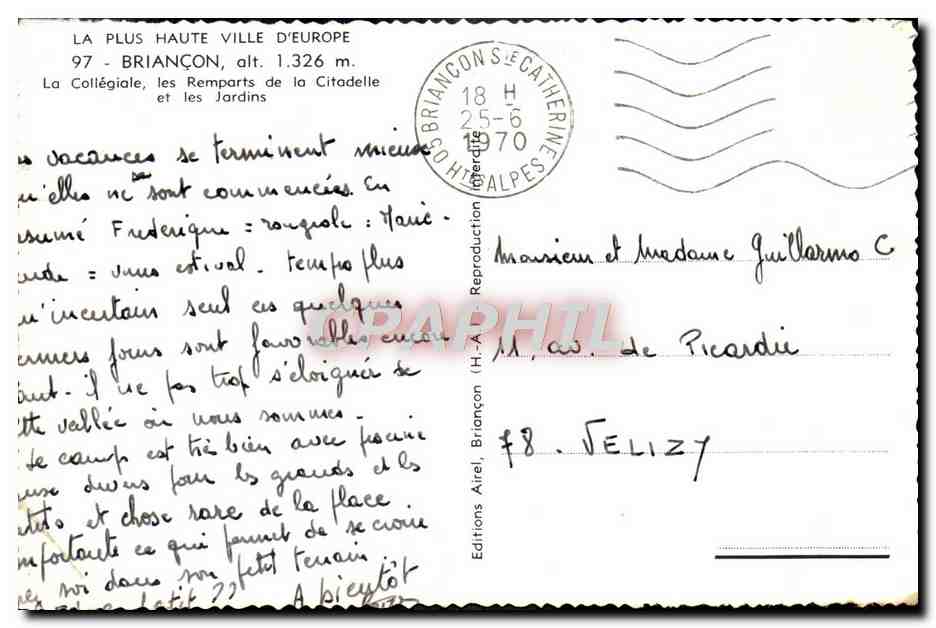 LA PLUS HAUTE VILLE D'EUROPE
97 - BRIANÇON, alt. 1.326 m.
La Collégiale, les Remparts de la Citadelle
et les Jardins
vacances se terminent mieux
qu'elles ne se sont commencées. En
résumé Frederique = rougeole = Marie-
= virus estival. temps plus
qu'incertain seul ces quelques
derniers jours sont favorables encore
faut-il ne pas trop s'éloigner de
cette vallée où nous sommes.
de camp est très bien avec piscine
divers pour les grands et les
petits et chose rare de la place
importante ce qui permet de se croire
chez soi dans son petit terrain
A bientôt
BRIANÇON STE CATHERINE
18 H
25-6
1970
05 HTES ALPES
Editions Airel, Briançon (H.-A.) Reproduction interdite
Monsieur et Madame Guillarmo C
11, av. de Picardie
78. VELIZY
CPAPHIL